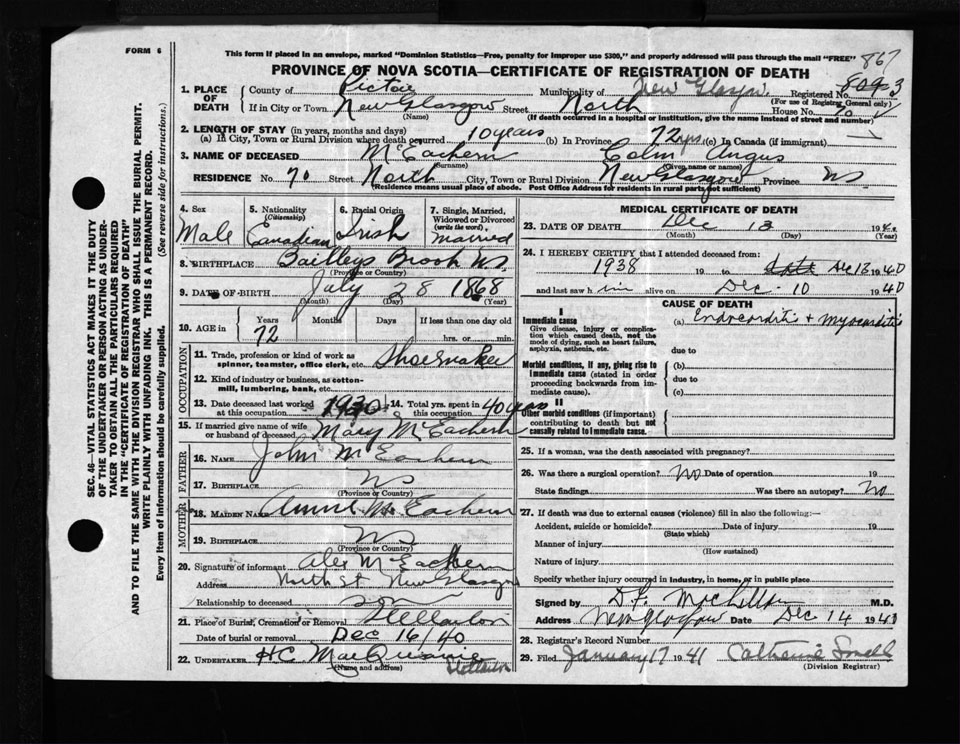 FORM 6
This form if placed in an envelope, marked "Dominion Statistics—Free, penalty for improper use $300," and properly addressed will pass through the mail "FREE"
867
PROVINCE OF NOVA SCOTIA—CERTIFICATE OF REGISTRATION OF DEATH
1. PLACE OF DEATH
County of Pictou Municipality of New Glasgow. Registered No.
(For use of Registrar General only)
If in City or Town New Glasgow Street North House No. 70
(Name) (If death occurred in a hospital or institution, give the name instead of street and number)
2. LENGTH OF STAY (in years, months and days)
(a) In City, Town or Rural Division where death occurred 10 years (b) In Province 72 yrs (c) In Canada (if immigrant)
3. NAME OF DECEASED McEachern Colin Angus
(Surname) (Given name or names)
RESIDENCE No. 70 Street North City, Town or Rural Division New Glasgow Province NS
(Residence means usual place of abode. Post Office Address for residents in rural parts not sufficient)
4. Sex Male
5. Nationality (Citizenship) Canadian
6. Racial Origin Irish
7. Single, Married, Widowed or Divorced (write the word) married
8. BIRTHPLACE Bailleys Brook NS.
(Province or Country)
9. DATE OF BIRTH July 28 1868
(Month) (Day) (Year)
10. AGE in Years Months Days If less than one day old
72 hrs. or min.
OCCUPATION
11. Trade, profession or kind of work as spinner, teamster, office clerk, etc. Shoemaker
12. Kind of industry or business, as cotton-mill, lumbering, bank, etc.
13. Date deceased last worked at this occupation 1930
14. Total yrs. spent in this occupation 40 years
15. If married give name of wife or husband of deceased Mary McEachern
FATHER
16. NAME John McEachern
17. BIRTHPLACE NS
(Province or Country)
MOTHER
18. MAIDEN NAME Annie McEachern
19. BIRTHPLACE NS
(Province or Country)
20. Signature of informant Alex McEachern
Address North St New Glasgow
Relationship to deceased son
21. Place of Burial, Cremation or Removal Stellarton
Date of burial or removal Dec 16/40
22. UNDERTAKER H.C. MacQuarrie Stellarton
(Name and address)
MEDICAL CERTIFICATE OF DEATH
23. DATE OF DEATH Dec 13 1940
(Month) (Day) (Year)
24. I HEREBY CERTIFY that I attended deceased from:
1938 19 to Dec 13 1940
and last saw him alive on Dec. 10 1940
CAUSE OF DEATH
I
Immediate cause
Give disease, injury or complication which caused death, not the mode of dying, such as heart failure, asphyxia, asthenia, etc.
(a) Endocarditis + Myocarditis
due to
Morbid conditions, if any, giving rise to immediate cause (stated in order proceeding backwards from immediate cause).
(b)
due to
(c)
II
Other morbid conditions (if important) contributing to death but not causally related to immediate cause.
25. If a woman, was the death associated with pregnancy?
26. Was there a surgical operation? no Date of operation 19
State findings Was there an autopsy? no
27. If death was due to external causes (violence) fill in also the following:—
Accident, suicide or homicide? Date of injury 19
(State which)
Manner of injury
(How sustained)
Nature of injury
Specify whether injury occurred in industry, in home, or in public place
Signed by D.F. M.D.
Address New Glasgow Date Dec 14 194
28. Registrar's Record Number
29. Filed January 17 1941 Catherine
(Division Registrar)
SEC. 46—VITAL STATISTICS ACT MAKES IT THE DUTY
OF THE UNDERTAKER OR PERSON ACTING AS UNDER-
TAKER TO OBTAIN ALL THE PARTICULARS REQUIRED
IN THE "CERTIFICATE OF REGISTRATION OF DEATH"
AND TO FILE THE SAME WITH THE DIVISION REGISTRAR WHO SHALL ISSUE THE BURIAL PERMIT.
WRITE PLAINLY WITH UNFADING INK. THIS IS A PERMANENT RECORD.
Every item of information should be carefully supplied. (See reverse side for instructions.)